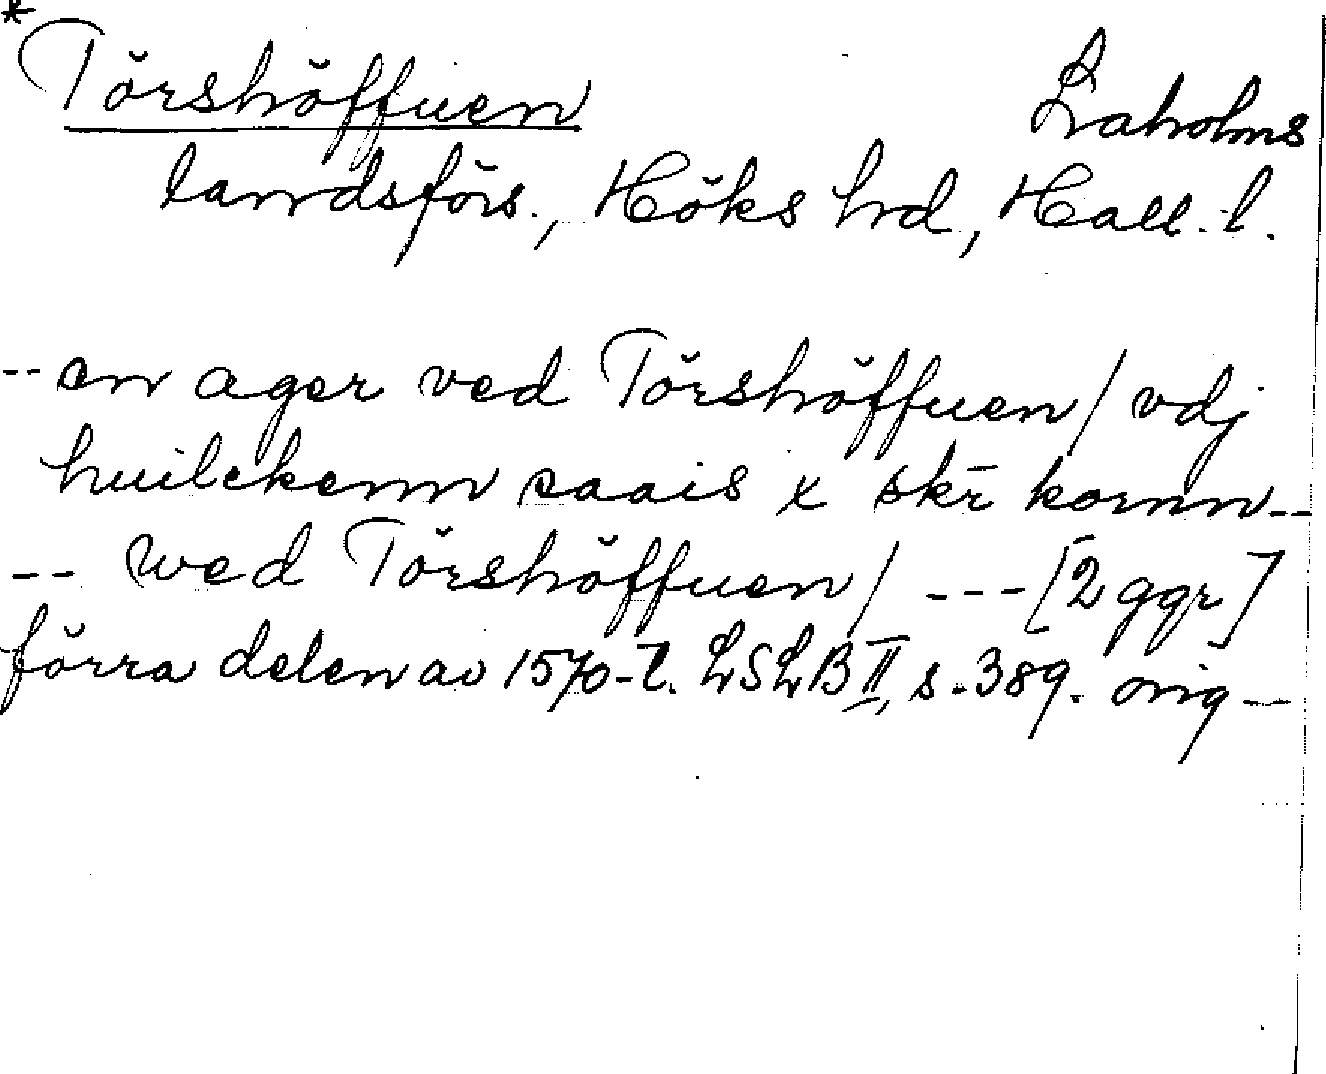 *
Törshöffuen Laholms
landsförs., Höks hd, Hall. l.
-- en ager ved Törshöffuen / vdj
huilckenn saais x skr̄ kornn --
-- wed Törshöffuen / --- [2 ggr]
förra delen av 1570-t. LSLB II, s. 389. orig –